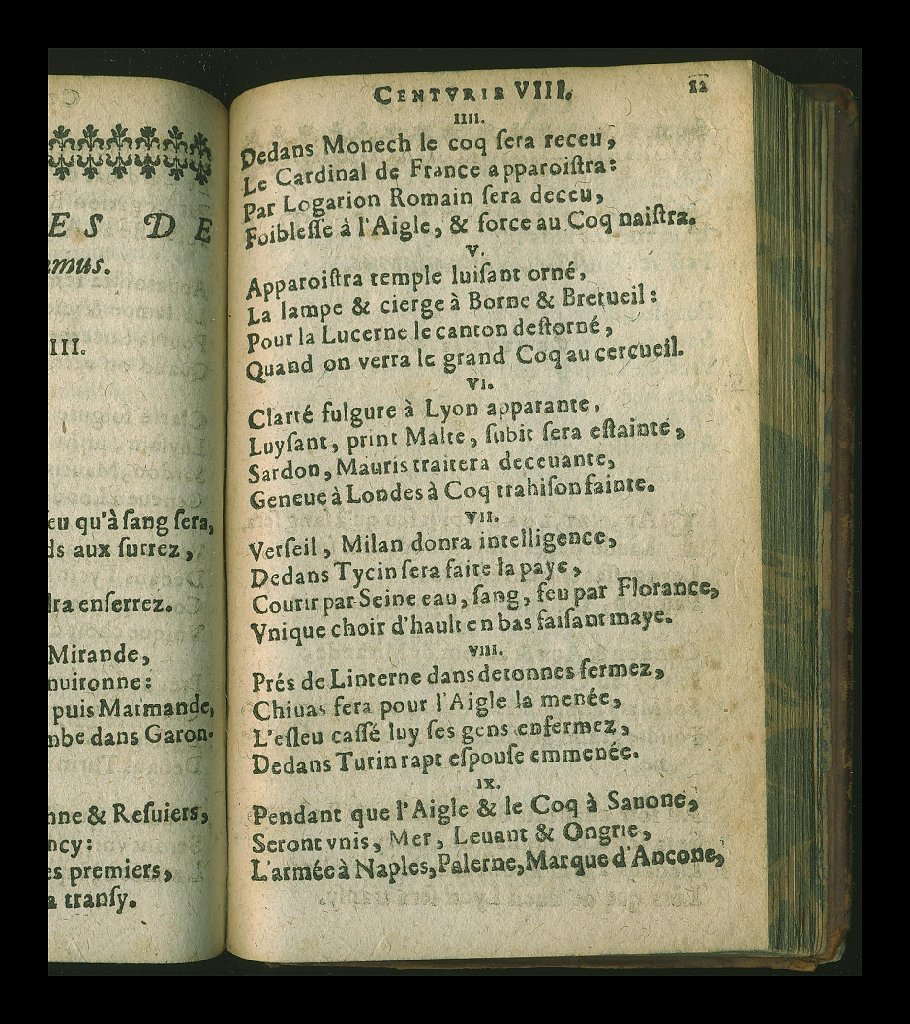 ES DE
emus.
III.
eu qu'à ſang ſera,
ds aux ſurrez,
dra enſerrez.
Mirande,
nuironne:
puis Marmande,
mbe dans Garon-
nne & Reſuiers,
ncy:
es premiers,
a tranſy.
CENTVRIE VIII. 12
IIII.
Dedans Monech le coq ſera receu,
Le Cardinal de France apparoiſtra:
Par Logarion Romain ſera deceu,
Foibleſſe à l'Aigle, & force au Coq naiſtra.
V.
Apparoiſtra temple luiſant orné,
La lampe & cierge à Borne & Bretueil:
Pour la Lucerne le canton deſtorné,
Quand on verra le grand Coq au cercueil.
VI.
Clarté fulgure à Lyon apparante,
Luyſant, print Malte, ſubit ſera eſtainte,
Sardon, Mauris traitera deceuante,
Geneue à Londes à Coq trahiſon fainte.
VII.
Verſeil, Milan donra intelligence,
Dedans Tycin ſera faite la paye,
Courir par Seine eau, ſang, feu par Florance,
Vnique choir d'hault en bas faiſant maye.
VIII.
Prés de Linterne dans detonnes fermez,
Chiuas fera pour l'Aigle la menée,
L'eſleu caſſé luy ſes gens enfermez,
Dedans Turin rapt eſpouſe emmenée.
IX.
Pendant que l'Aigle & le Coq à Sauone,
Seront vnis, Mer, Leuant & Ongrie,
L'armée à Naples, Palerne, Marque d'Ancone,